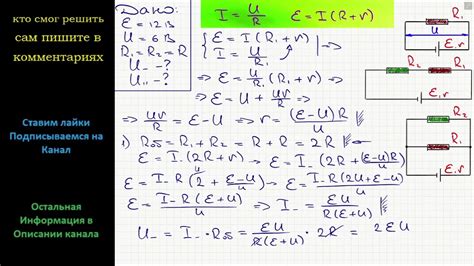 кто смог решить
сам пишите в
комментариях
Ставим лайки
Подписываемся на
Канал
Остальная
Информация в
Описании канала
Дано:
ℰ = 12 В
U = 6 В
R₁ = R₂ = R
U₋ - ?
U₌ - ?
I = U/R   ℰ = I(R+r)
{ ℰ = I(R₁+r)
I = U/R₁
⇒ ℰ = U/R (R+r) ⇒
⇒ ℰ = U + Ur/R ⇒
⇒ Ur/R = ℰ-U ⇒ r = (ℰ-U)R/U
1) Rоб = R₁ + R₂ = R + R = 2R
ℰ = I₋(2R+r) ⇒ ℰ = I₋(2R + (ℰ-U)R/U)
ℰ = I₋R(2 + (ℰ-U)/U) ⇒ ℰ = I₋R(2U+ℰ-U)/U
ℰ = I₋R(ℰ+U)/U ⇒ I₋ = ℰU/R(ℰ+U)
U₋ = I₋·Rоб = ℰU/R(ℰ+U) · 2R = 2ℰU
U
R₁
ℰ, r
R₂
R₁
ℰ, r
R₂
R₁
ℰ, r